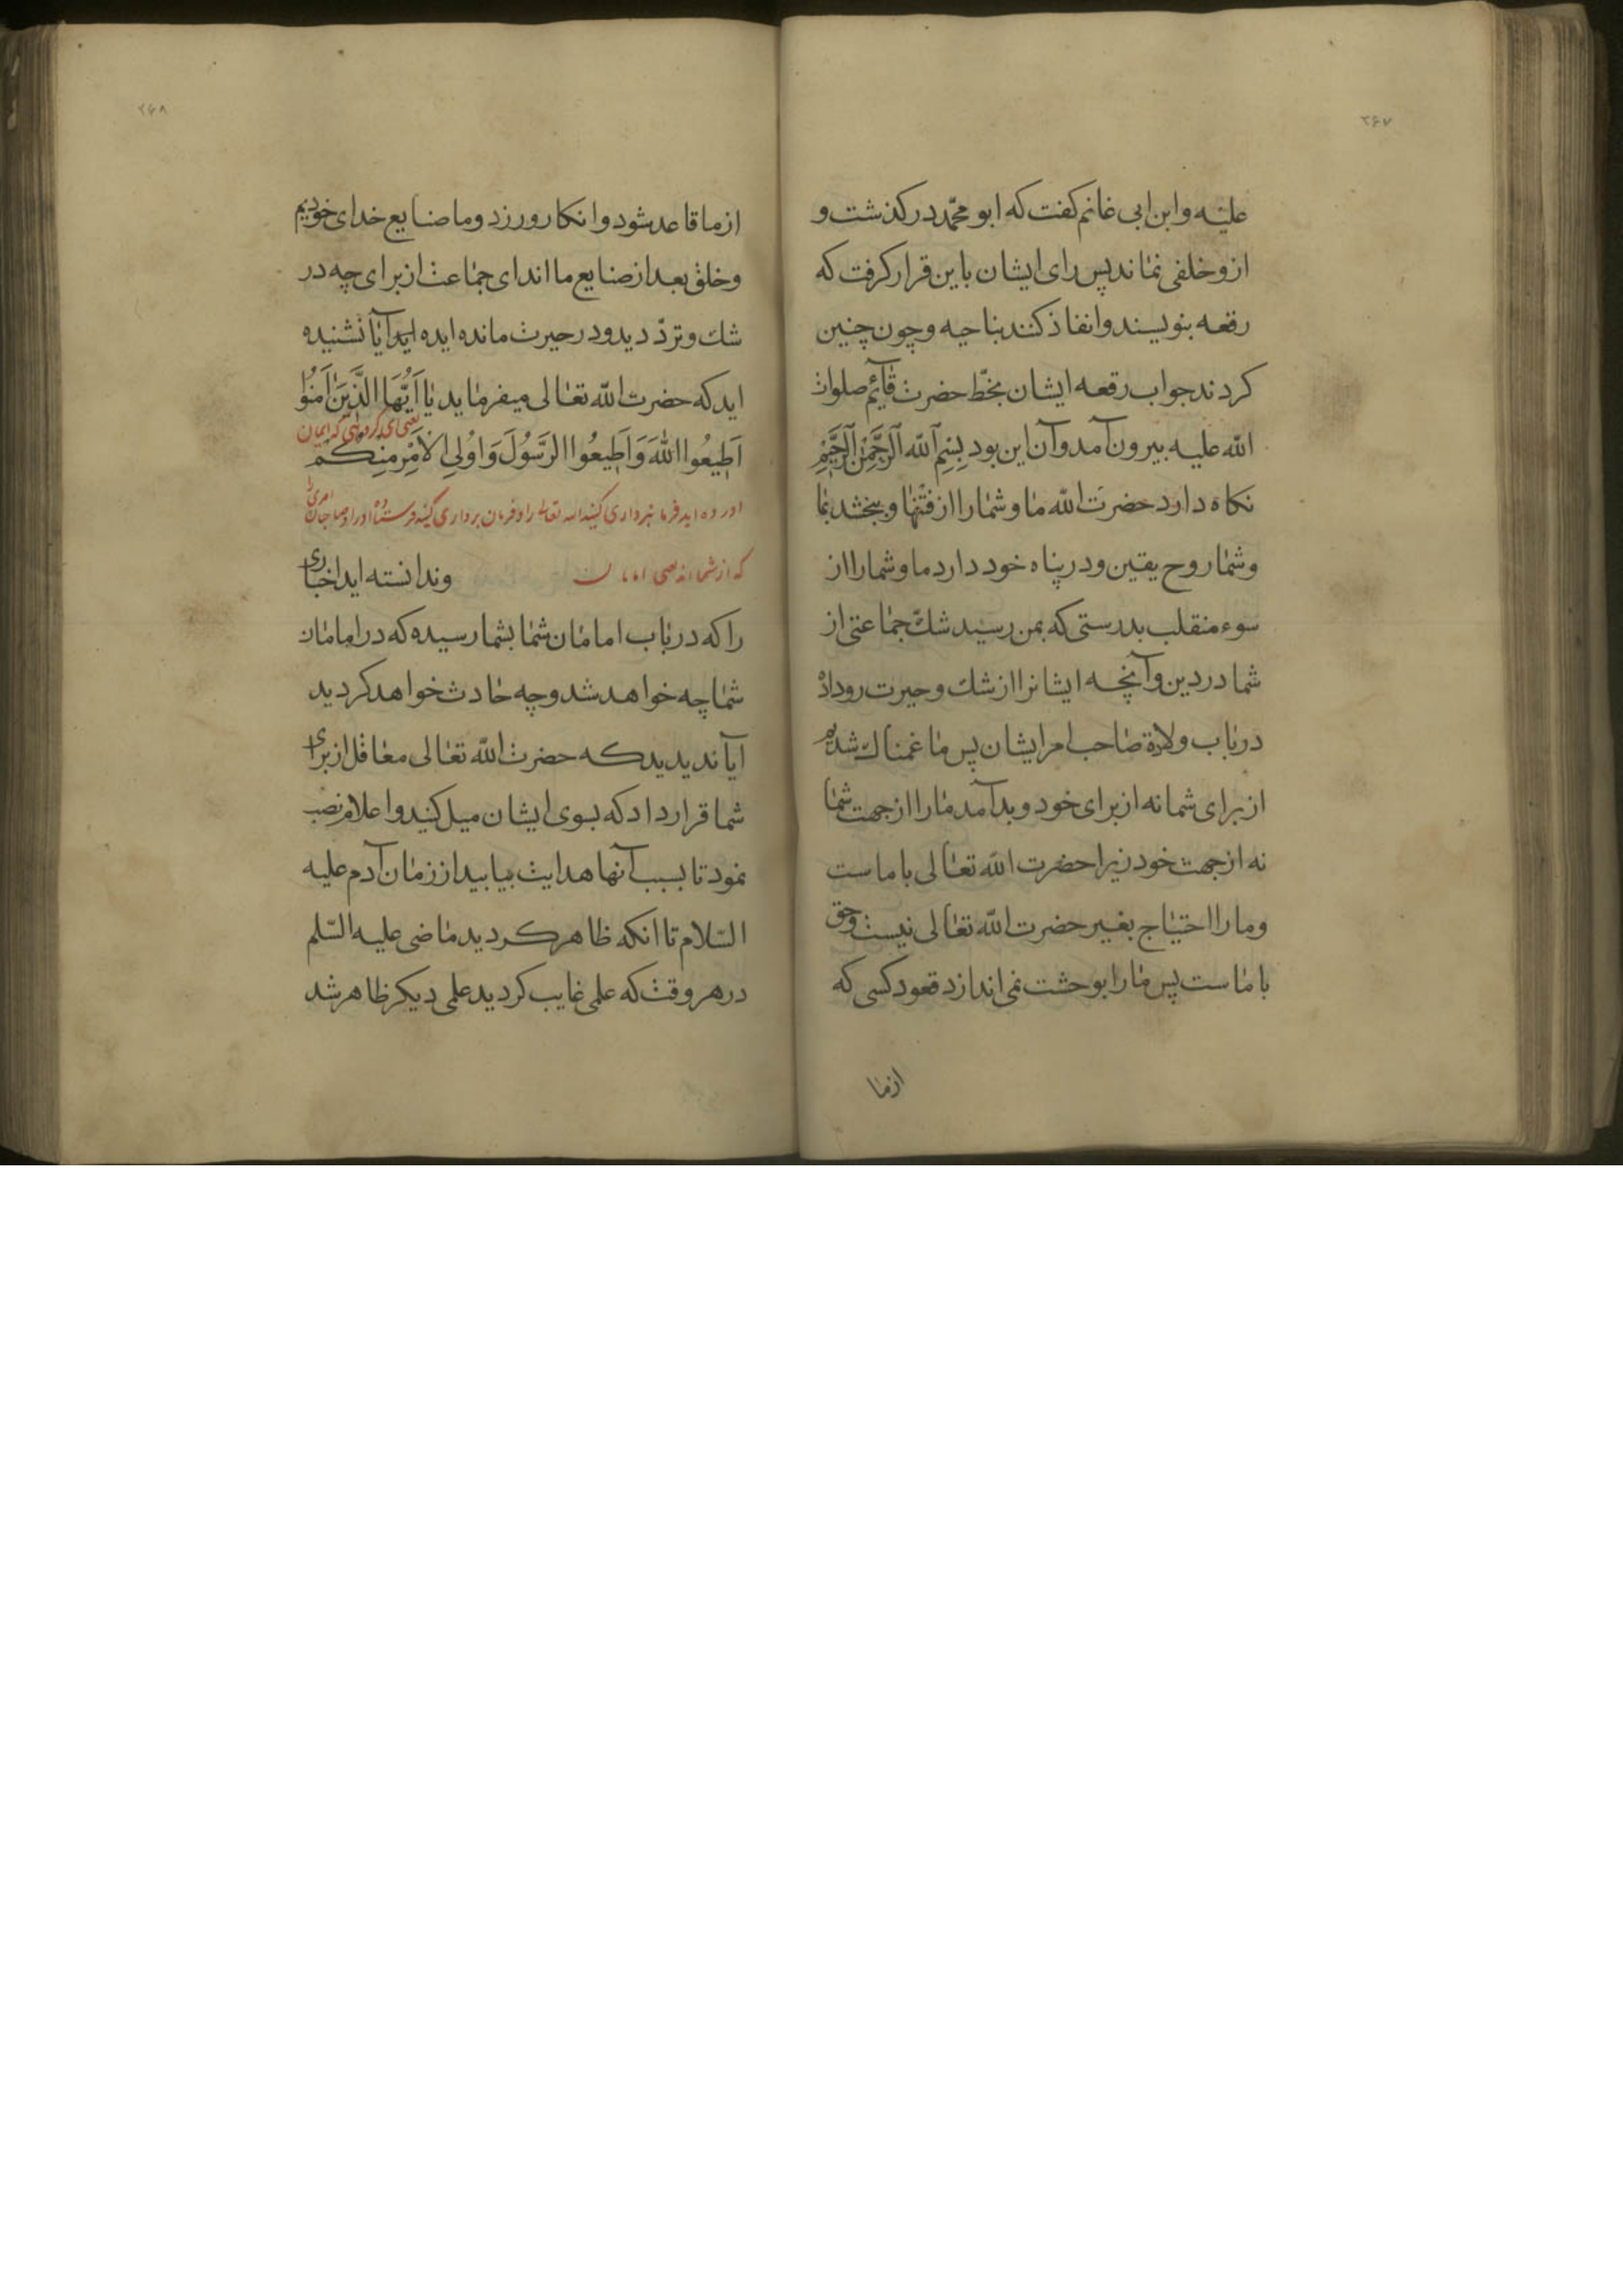 ۲۶۷
علیه وابن ابی غانم کفت که ابو محمّد درکذشت و
ازو خلفی نماند پس رای ایشان باین قرار کرفت که
رقعه بنویسند وانفاذ کنند بناحیه و چون چنین
کردند جواب رقعه ایشان بخطّ حضرت قآئم صلوات
الله علیه بیرون آمد وآن این بود بِسْمِ ٱللّه ٱلرَّحْمٰنِ ٱلرَّحِیْمِ
نکاه دارد حضرَت اللّه ما و شما را از فتنها و ببخشد بما
وشما روح یقین و در پناه خود دارد ما وشما را از
سوء منقلب بدرستی که بمن رسید شكّ جماعتی از
شما در دین وآنچه ایشانرا از شك وحیرت روداده
در باب ولاة صاحب امر ایشان پس ما غمناك شدیم
از برای شما نه از برای خود و بد آمد ما را از جهت شما
نه از جهت خود زیرا حضرت اللّه تعالی با ماست
وما را احتیاج بغیر حضرت اللّه تعالی نیست وحق
با ماست پس ما را بوحشت نمی اندازد قعود کسی که
ازما
۲۶۸
از ما قاعد شود وانکار ورزد وما صنایع خدای خودیم
وخلق بعد از صنایع ما اند ای جماعت از برای چه در
شك و تردّد دیدو در حیرت مانده ایده اید آیا نشنیده
اید که حضرت اللّه تعالی میفرماید یٰا اَیُّهَا الَّذِیَنَ اٰمَنُوْا
یعنی ای کروهی که ایمان
اَطِیعُوا اللّٰهَ وَاَطِیعُوا الرَّسُوْلَ وَاوُلِی الْاَمْرِ مِنِکُمْ
اورده اید فرمانبرداری کنید الله تعالی را وفرمان برداری کنید فرستاده او را وصاحبان امری را
که از شما اند یعنی امامان
وندانسته اید اخباری
را که در باب امامان شما بشما رسیده که در امامان
شما چه خواهد شد و چه حادث خواهد کردید
ایآ ندیدید که حضرت اللّه تعالی معاقل از برای
شما قرار داد که بسوی ایشان میل کنید واعلام نصب
نمود تا بسبب آنها هدایت بیابید از زمان آدم علیه
السّلام تا انکه ظاهر کردید ماضی علیه السّلم
در هر وقت که علمی غایب کردید علمی دیکر ظاهر شد